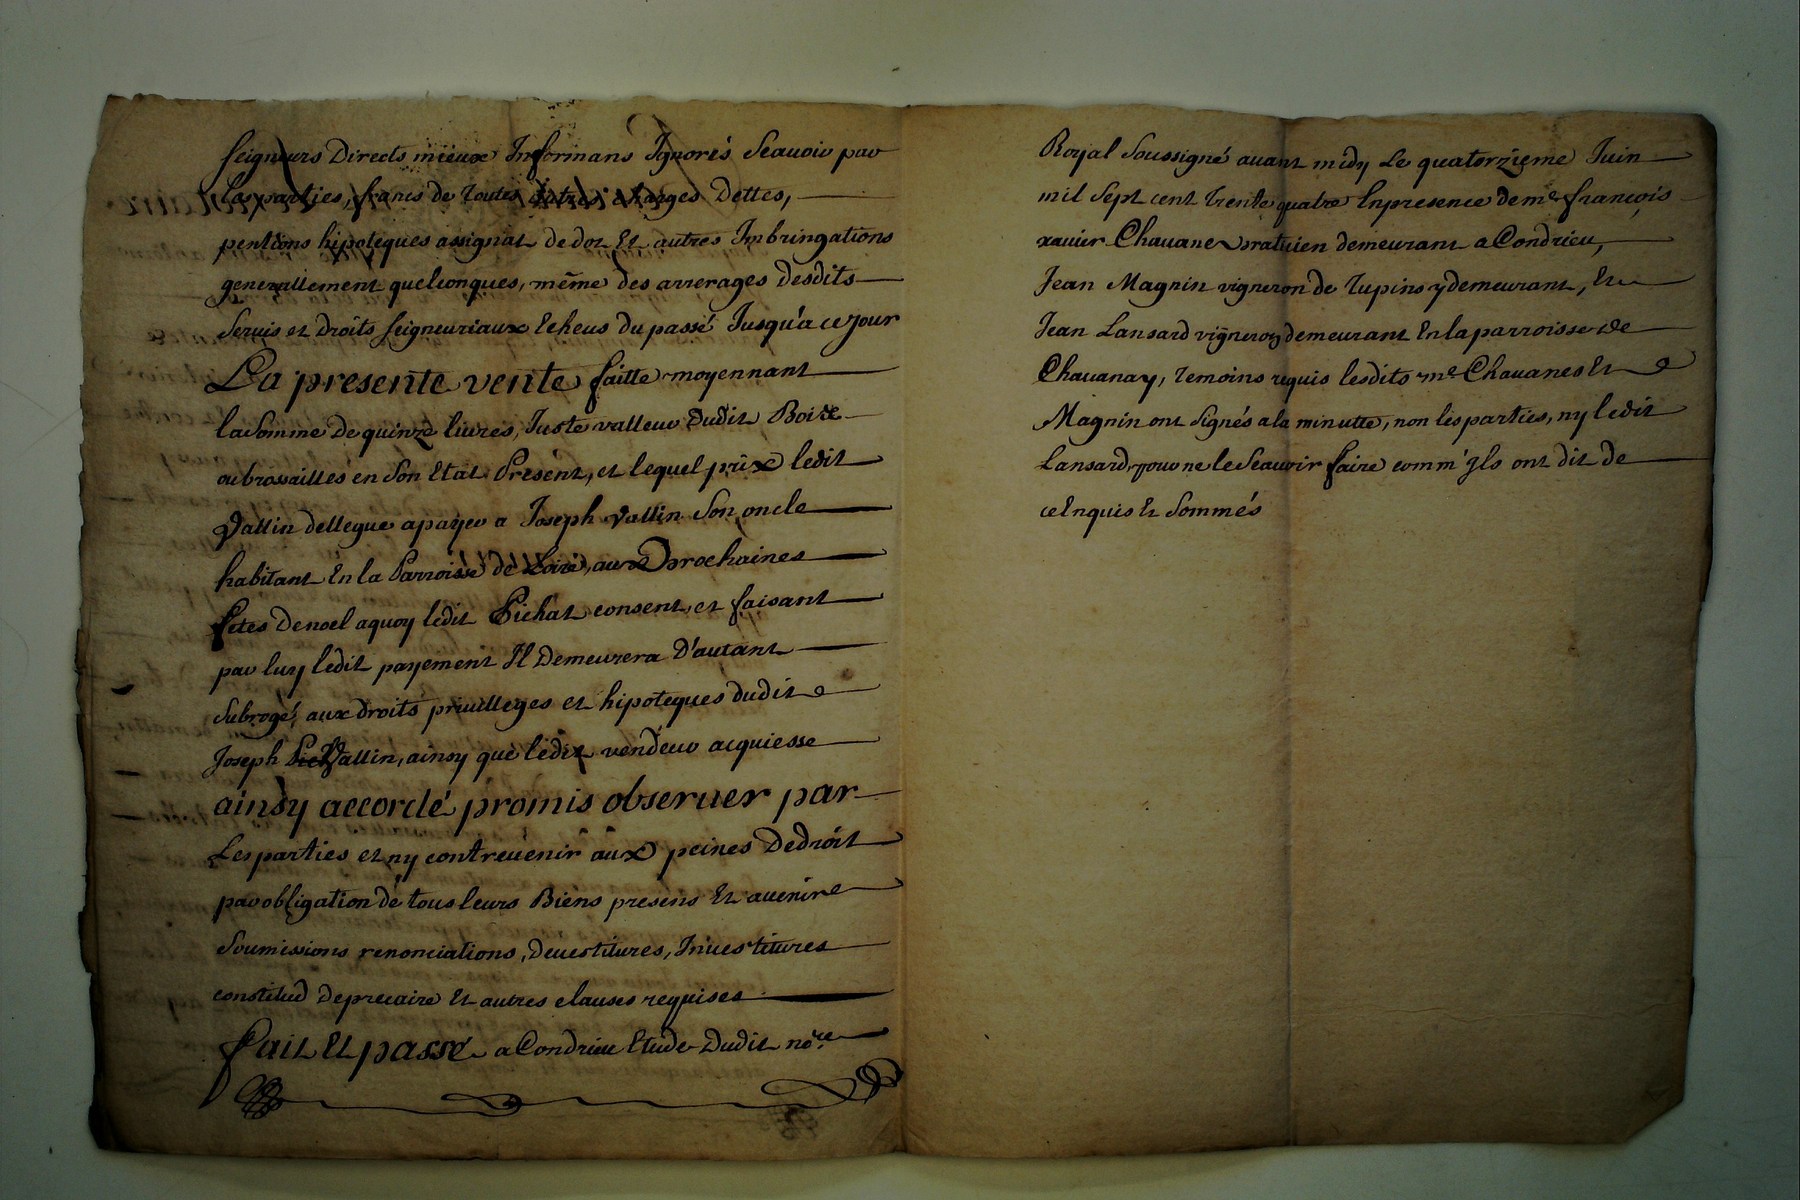 seigneurs Directs mieux Informans Ignorés Scauoir par
Les parties, francs de Toutes autres charges Dettes,
pentions hipoteques assignat de dot Et autres Imbringations
generallement quelconques, même des arrerages desdits
Seruis et droits seigneuriaux Echeus du passé Jusqu'a ce Jour
La presente vente faitte moyennant
la Somme De quinze liures, Juste valleur Dudit Bois
ou brossailles en Son Etat Present, et lequel prix ledit
Vallin dellegue a payer a Joseph Vallin Son oncle
habitant En la Parroisse de Loire, aux Prochaines
fetes De noel a quoy ledit Pichat consent, et faisant
par luy ledit payement Il Demeurera D'autant
Subrogé, aux droits priuilleges et hipoteques dudit
Joseph Vallin, ainsy que ledit vendeur acquiesse
ainsy accordé promis obseruer par
Les parties et ny contreuenir aux peines De droit
par obligation de tous leurs Biens presens Et auenir
Soumissions renonciations, Deuestitures, Inuestitures
constitud De precaire Et autres clauses requises
Fait Et passé a Condrieu Etude Dudit nore
Royal Soussigné auant midy Le quatorzieme Juin
mil Sept cent Trente quatre En presence de me françois
xauier Chauane praticien demeurant a Condrieu,
Jean Magnin vigneron de Tupins y demeurant, Et
Jean Lansard vigneron demeurant En la parroisse de
Chauanay, Temoins requis lesdits me Chauanes Et
Magnin ont Signés a la minutte, non les parties, ny ledit
Lansard, pour ne le Scauoir faire comm'Ils ont dit de
ce Enquis Et Sommés